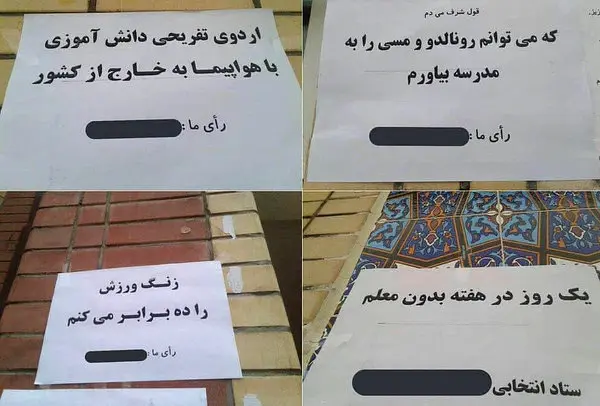 اردوی تفریحی دانش آموزی
با هواپیما به خارج از کشور
رأی ما :
قول شرف می دم
که می توانم رونالدو و مسی را به
مدرسه بیاورم
رأی ما :
زنگ ورزش
را ده برابر می کنم
رأی ما :
یک روز در هفته بدون معلم
ستاد انتخابی